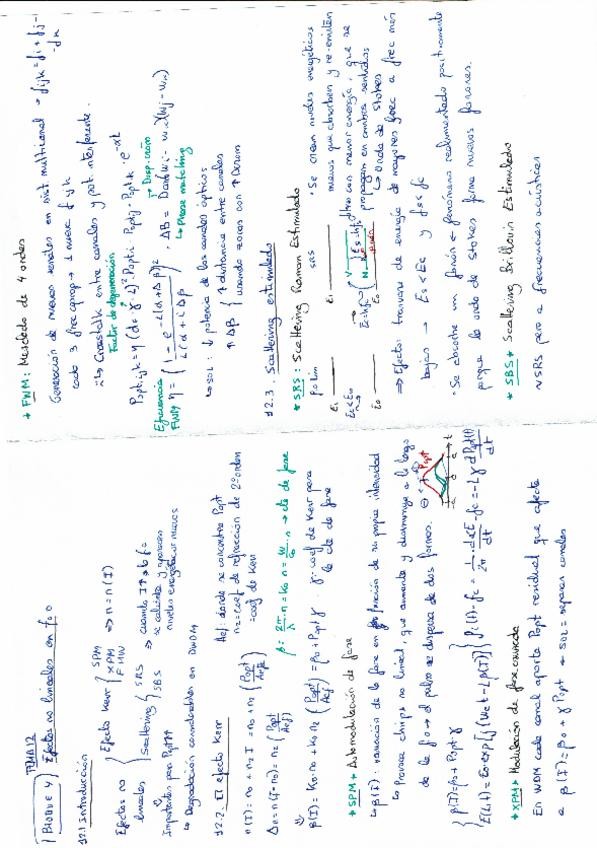 TEMA 12
BLOQUE 4) Efectos no lineales en f.o
12.1 Introducción
Efectos no lineales { Efecto Kerr { SPM XPM FWM ⇒ n = n(I)
Scattering { SRS SBS ⇒ cuando I↑
niveles energéticos nuevos
Importantes para Popt↑↑
↳ Degradación considerable en DWDM
12.2. El efecto Kerr
n(I) = n0 + n2 I = n0 + n2 (Popt/Aef)
Aef: donde se concentra Popt
n2 = coef de refracción de 2º orden
= coef de Kerr
Δn = n(I) - n0) = n2 (Popt/Aef)
β = 2π/λ · n = k0 · n = w/c0 · n → cte de fase
β(I) = k0·n0 + k0 n2 (Popt/Aef) = β0 + Popt γ
γ: coef de Kerr para la cte de fase
* SPM * Automodulación de fase
↳ β(I): variación de la fase en función de su propia intensidad
↳ provoca chirps no lineal, que aumenta y disminuye a lo largo
de la f.o → el pulso se dispersa de dos formas.
Popt
β(I) = β0 + Popt γ
* XPM * Modulación de fase cruzada
En WDM cada canal aporta Popt residual que afecta
a β(I) = β0 + γ Popt ← SOL = separar canales
* FWM: Mezclado de 4 ondas
Generación de nuevos canales en sist multicanal → fijk = fi + fj - fk
cada 3 frec aprop → 1 nueva fijk
↳ Crosstalk entre canales y pot interferente.
Factor de degeneración
Eficiencia FWM
↳ Disp. crom
↳ Phase matching
↳ SOL: ↓ potencia de los canales ópticos
↑ Δβ { ↑ distancia entre canales
usando zonas con ↑ Dcrom
12.3. Scattering estimulado
* SRS: Scattering Raman Estimulado
fotón
SRS
· Se crean niveles energéticos
nuevos que absorben y re-emiten
fotones con menor energía, que se
propagan en ambos sentidos
↳ Onda de Stokes
⇒ Efecto: transvase de energía de mayores frec a frec más
bajas → Es < Ec y fs < fc
· Se absorbe un fonón ← fenómeno realimentado positivamente
porque la onda de Stokes forma nuevos fonones.
* SBS * Scattering Brillouin Estimulado
~ SRS pero a frecuencias acústicas